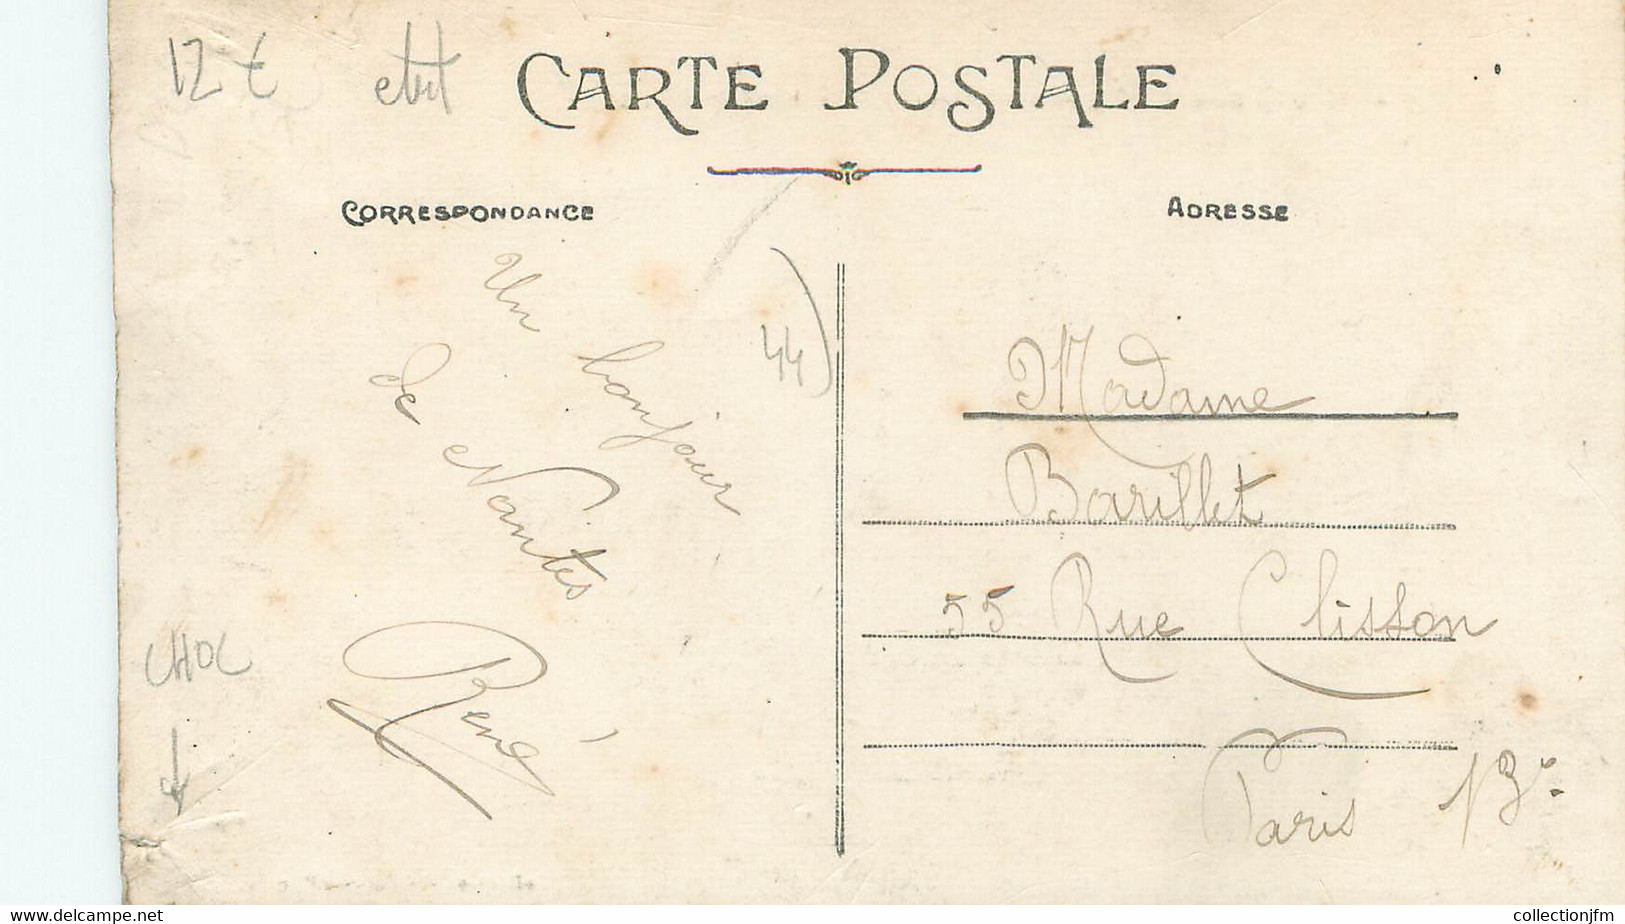 12 €
CARTE POSTALE
CORRESPONDANCE
ADRESSE
Un bonjour
de Nantes
René
44
CHOC
Madame
Barillet
55 Rue Clisson
Paris 13e
www.delcampe.net
collectionjfm